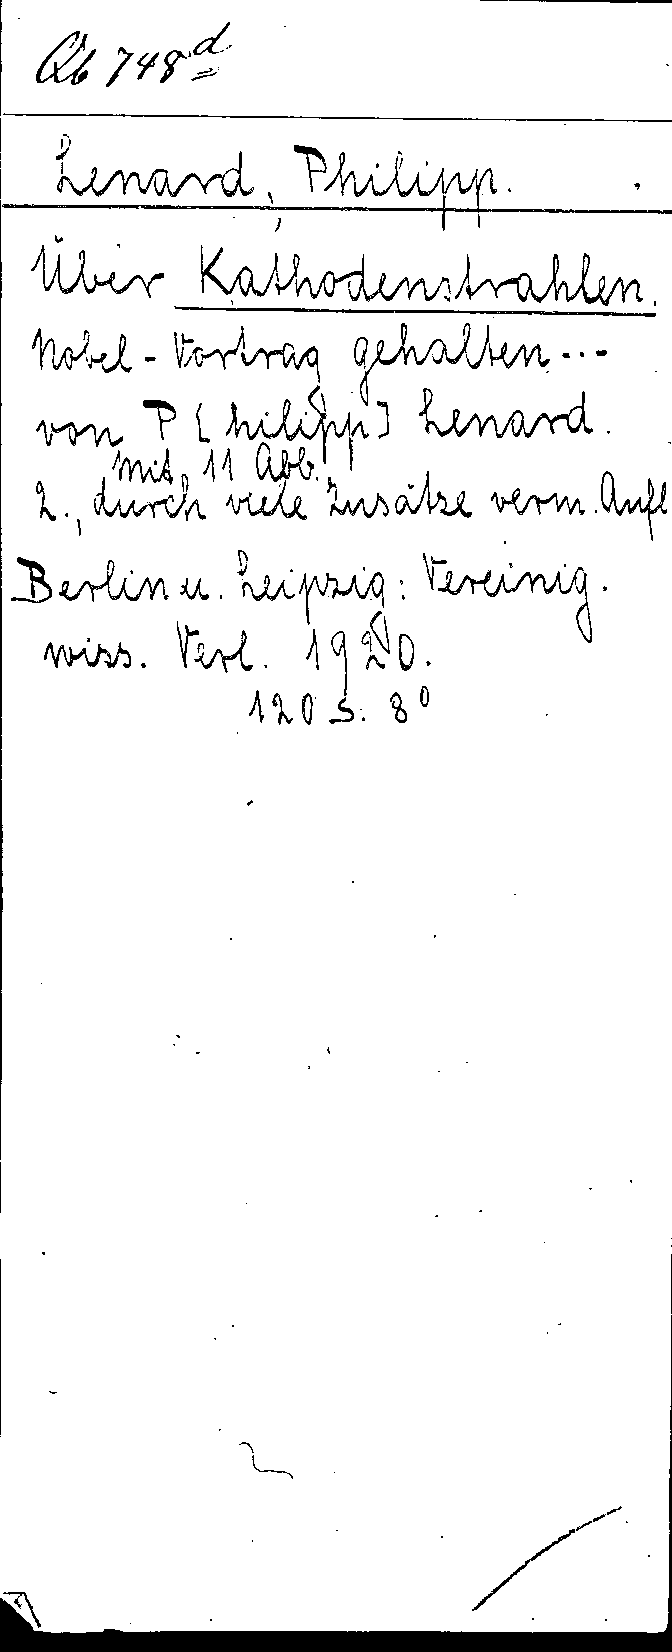 Qb 748 d
Lenard, Philipp.
Über Kathodenstrahlen.
Nobel-Vortrag gehalten...
von P[hilipp] Lenard.
Mit 11 Abb.
2., durch viele Zusätze verm. Aufl
Berlin u. Leipzig: Vereinig.
wiss. Verl. 1920.
120 S. 8°